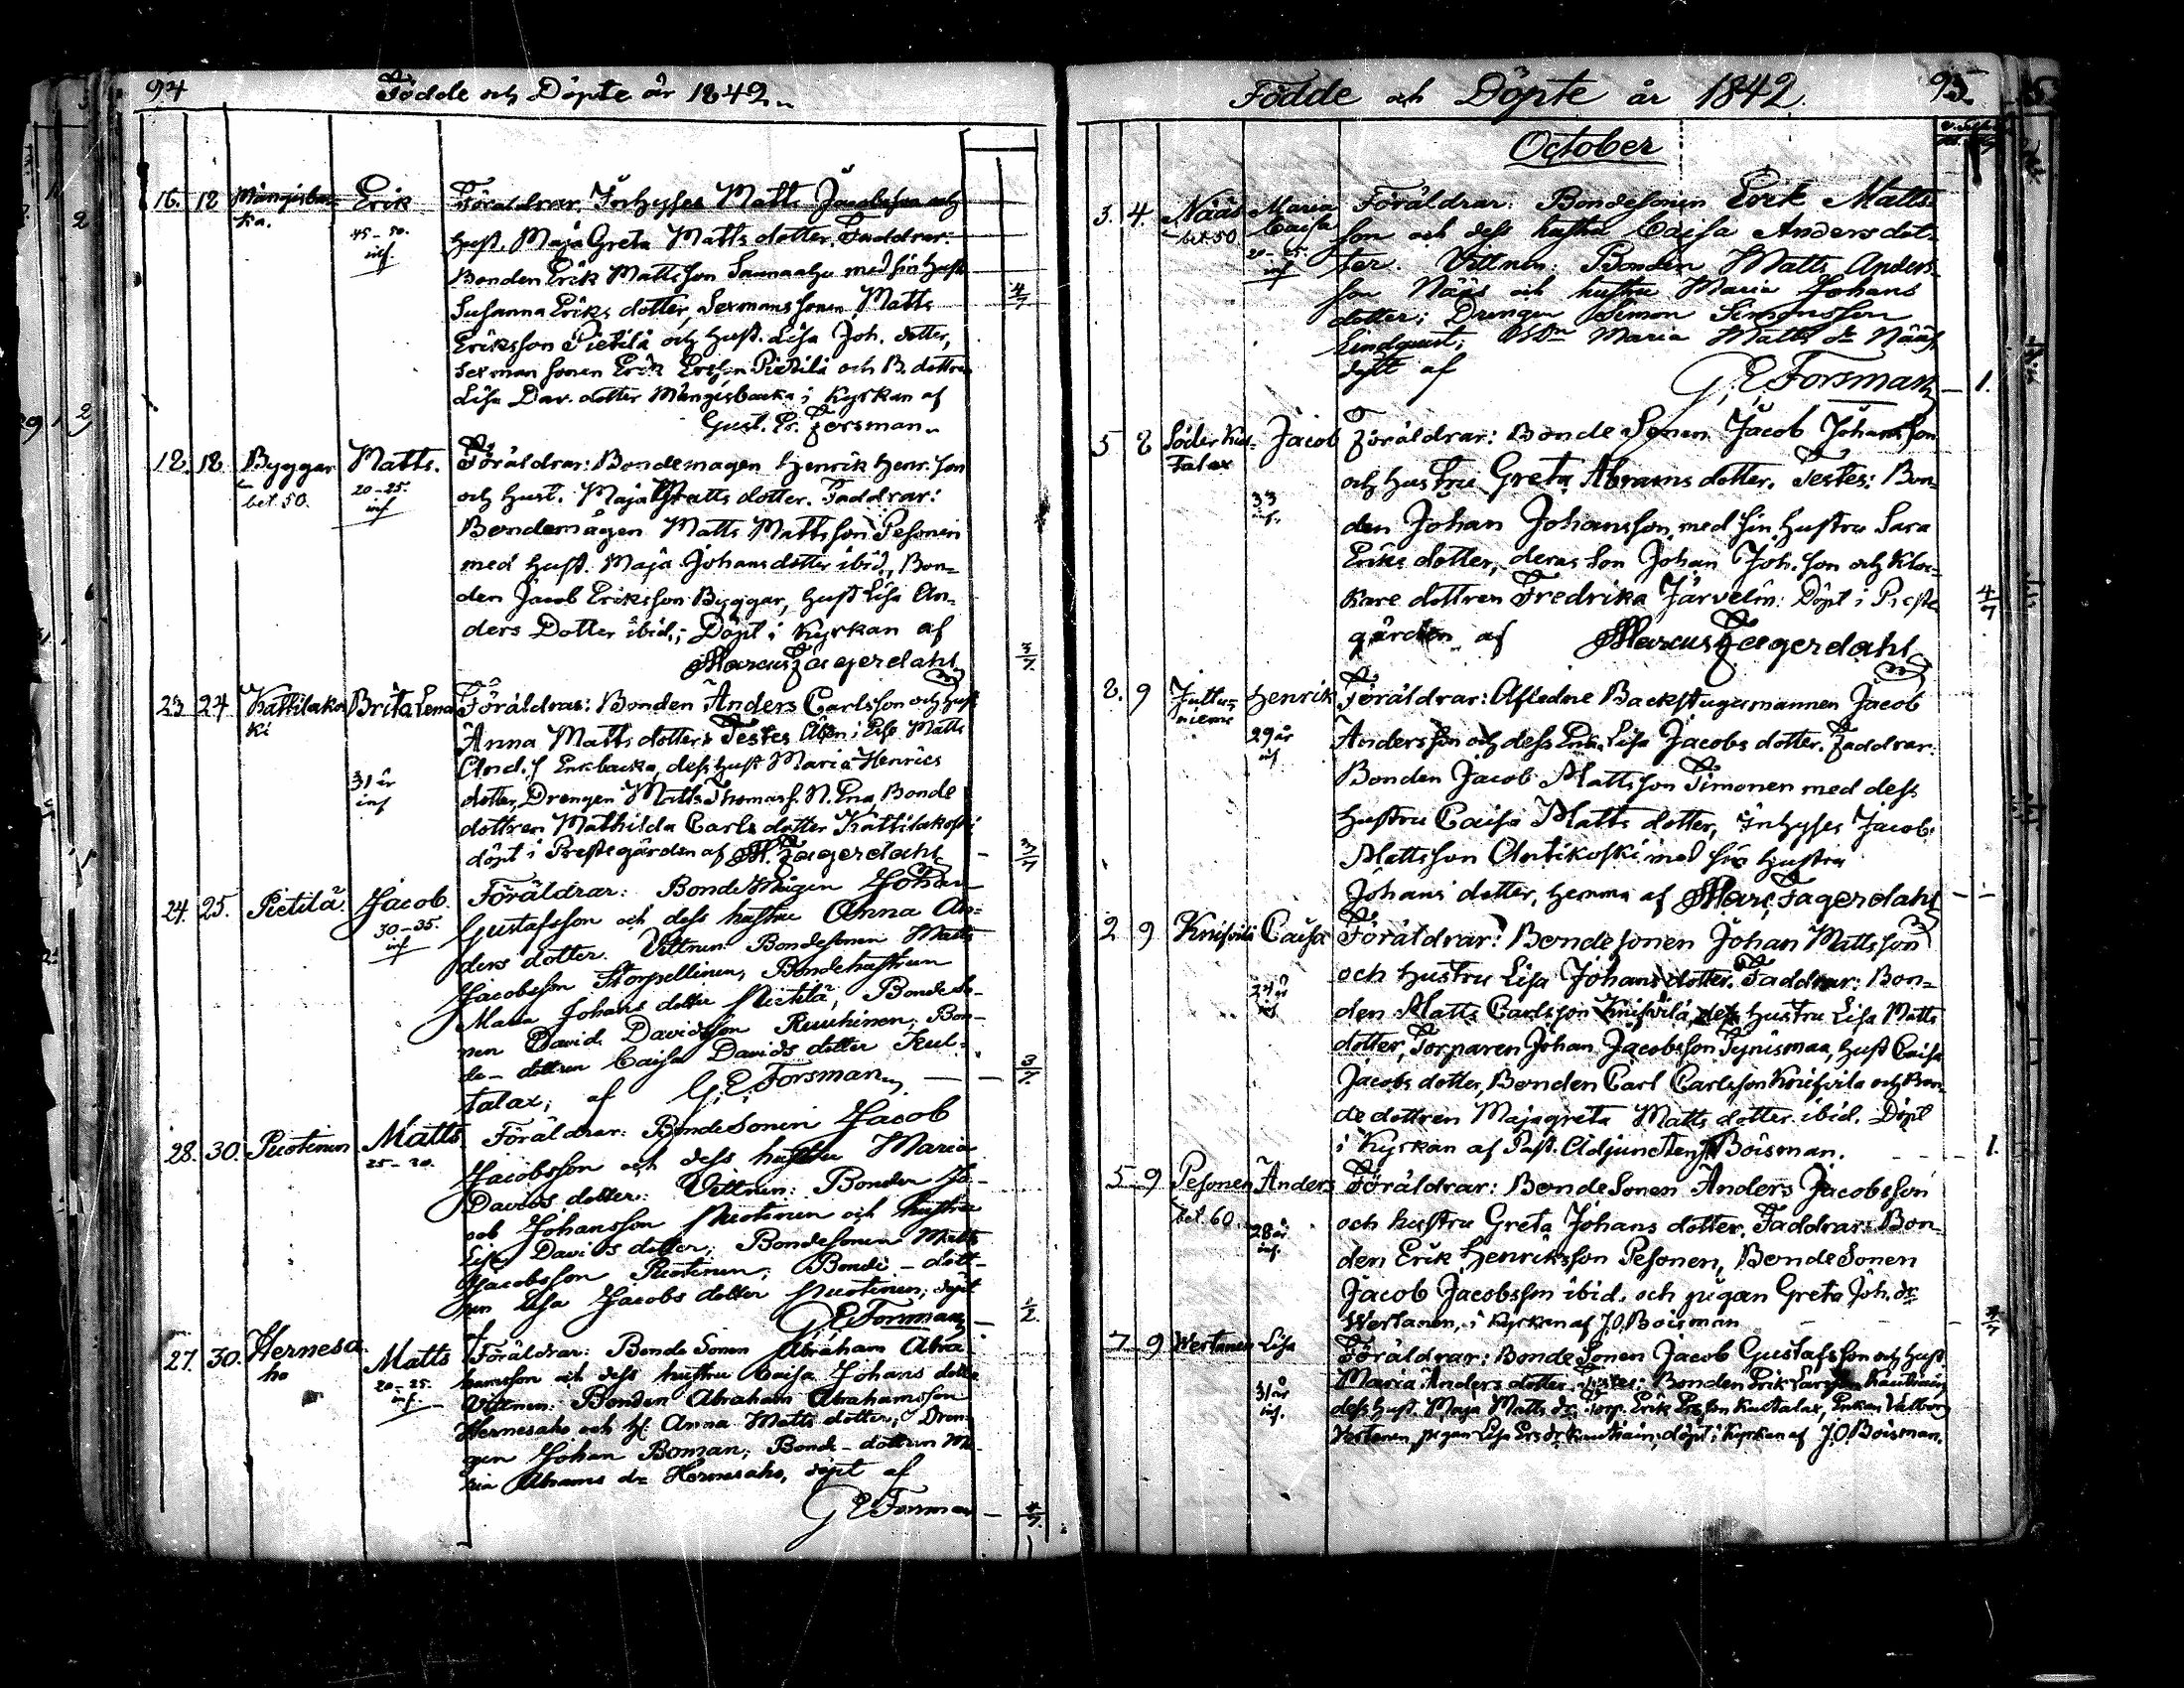 94
Födde och Döpte år 1842
16. 18 Mångisbac-
ka.
Erik
45-50.
inf.
Föräldrar. Inhyses Matts Jacobsson och
hust. Maja Greta Matts dotter. Faddrar:
Bonden Erik Mattsson Saunaaho med sin hust
Susanna Eriks dotter, Sexmanssonen Matts
Eriksson Pietilä och hust. Lisa Joh. dotter,
sexman sonen Erik Ersson Pietilä och B. dottren
Lisa Dav. dotter Mångisbacka i Kyrkan af
Gust. Er. Forsman.
4/7
18. 18 Byggar
bet. 50.
Matts.
20-25.
inf
Föräldrar: Bondemågen Henrik Henr. son
och hust. Maja Matts dotter. Faddrar:
Bondemågen Matts Mattsson Pesonen
med hust. Maja Johans dotter ibid., Bon=
den Jacob Eriksson Byggar, hust Lisa An=
ders Dotter ibid.; Döpt i Kyrkan af
Marcus Fagerdahl
3/7
23 24 Kattilakos
ki
Brita Lena
31 år
inf
Föräldrar: Bonden Anders Carlsson och hust
Anna Matts dotter. Testes Åbon i Esse Matts
And. s Enkbacka, dess hust Maria Henrics
dotter, Drengen Matts Thomas s. N. Ena, Bonde
dottren Mathilda Carls dotter Kattilakoski
döpt i Prestegården af M. Fagerdahl
3/7
24. 25. Pietilä.
Jacob.
30-35.
inf
Föräldrar: Bondemågen Johan
Gustafsson och dess hustru Anna An=
ders dotter. Vittnen: Bondesonen Matts
Jacobsson Storpellinen, Bondehustrun
Maria Johans dotter Pietilä, Bonde so-
nen David Davidsson Ruuhinen, Bon-
de-dottren Caisa Davids dotter Kul-
talax, af G. E. Forsman
3/7.
28. 30. Puotinen
Matts
25-30.
Föräldrar: Bondesonen Jacob
Jacobsson och dess hustru Maria
Davids dotter: Vittnen: Bonden Ja-
cob Johansson Puotinen och hustru
Lisa Davids dotter; Bondesonen Matts
Jacobsson Puotinen; Bonde-dott-
ren Lisa Jacobs dotter Puotinen; döpt
G E Forsman
1/2.
27. 30. Hernesa-
ho
Matts
20-25.
inf.
Föräldrar: Bonde Sonen Abraham Abra-
hamsson och dess hustru Caisa Johans dotter
Vittnen: Bonden Abraham Abrahamsson
Hernesaho och h. Anna Matts dotter; Dren-
gen Johan Boman; Bonde-dottren Ma-
ria Abrams dr Hernesaho, döpt af
G E Forsman
Födde och Döpte år 1842.
95.
October
3. 4. Nääs
bet 50
Maria
Caisa
20-25.
inf
Föräldrar: Bondesonen Erik Matts
son och dess hustru Caisa Anders dot=
ter. Vittnen: Bonden Matts Anders-
son Nääs och hustru Maria Johans
dotter; Drengen Simon Simonsson
Lindquist; Maria Matts dr Nääs,
döpt af
G, E Forsman
1.
5 8 Söder Kul-
talax
Jacob
33
inf.
Föräldrar: Bonde Sonen Jacob Johansson
och hustru Greta Abrams dotter. Testes: Bon=
den Johan Johansson med sin hustru Sara
Eriks dotter, deras son Johan Joh. son och Kloc=
kare dottren Fredrika Järvelin: Döpt i Preste
gården af Marcus Fagerdahl
4/7
8. 9 Juttu=
niemi
Henrik
29 år
inf
Föräldrar: Afledne Backstugumannen Jacob
Andersson och dess Enka Lisa Jacobs dotter. Faddrar:
Bonden Jacob Mattsson Timonen med dess
hustru Caisa Matts dotter, Inhyses Jacob
Mattsson Antikoski med sin hustru
Johans dotter, hemma af Marc. Fagerdahl
2 9 Knifsilä
Caisa
Föräldrar: Bondesonen Johan Mattsson
och hustru Lisa Johans dotter. Faddrar: Bon=
den Matts Carlsson Knifsilä, dess hustru Lisa Matts
dotter, Torparen Johan Jacobsson Tynismaa, hust Caisa
Jacobs dotter, Bonden Carl Carlsson Knifsilä och Bon-
de dottren Majagreta Matts dotter ibid. Döpt
i Kyrkan af Past. Adjuncten J Boisman.
1.
5 9 Pesonen
bet. 60.
Anders
28 år
inf.
Föräldrar: Bonde Sonen Anders Jacobsson
och hustru Greta Johans dotter. Faddrar: Bon-
den Erik Henriksson Pesonen, Bonde Sonen
Jacob Jacobsson ibid. och pigan Greta Joh. dr
Wertanen, i kyrkan af J. O. Boisman
7. 9 Wertanen
Lisa
31 år
inf.
Föräldrar: Bonde Sonen Jacob Gustafsson och hust
Maria Anders dotter. Testes: Bonden Erik
dess hust. Maja Matts dr. Torp. Erik Ersson Kultalax, Enkan Valborg
Vertanen, pigan Lisa Ers dr döpt i kyrkan af J. O. Boisman.